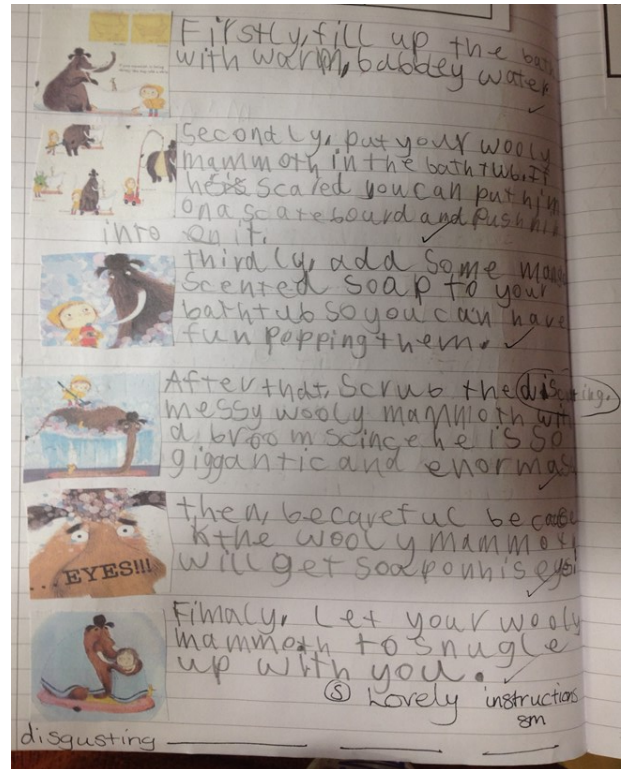 Firstly, fill up the bath
with warm, babbley water
Secondly, put your wooly
mammoth in the bath tub. If
he is scared you can put him
on a scatebourd and push him
into on it.
thirdly, add some
scented soap to your
bathtub so you can have
fun popping them.
After that, scrub the
messy wooly mammoth with
a broom scince he is so
giggantic and enormas
then, be careful because
the wooly mammoth
will get soap on his eyes
...EYES!!!
Fimaly, Let your wooly
mammoth to snugle
up with you.
Ⓢ Lovely instructions
sm
disgusting